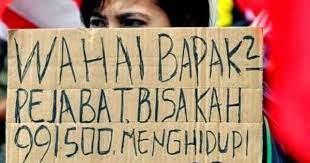 WAHAI BAPAK2
PEJABAT, BISAKAH
991.500, MENGHIDUPI